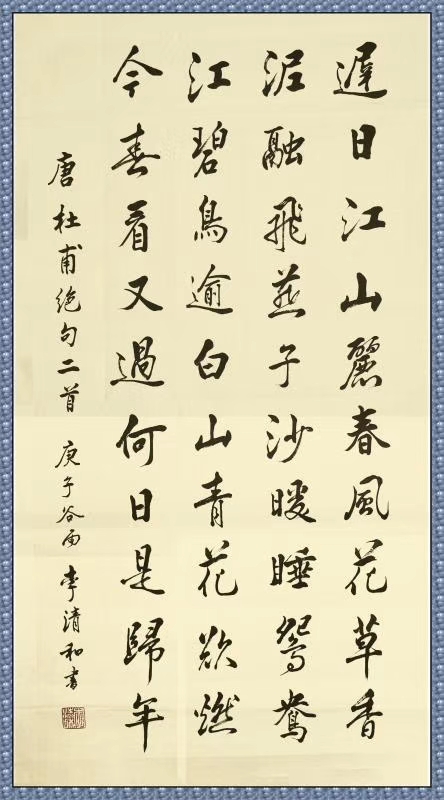 遲日江山麗春風花草香
泥融飛燕子沙暖睡鴛鴦
江碧鳥逾白山青花欲燃
今春看又過何日是歸年
唐杜甫絕句二首 庚子谷雨 李清和書